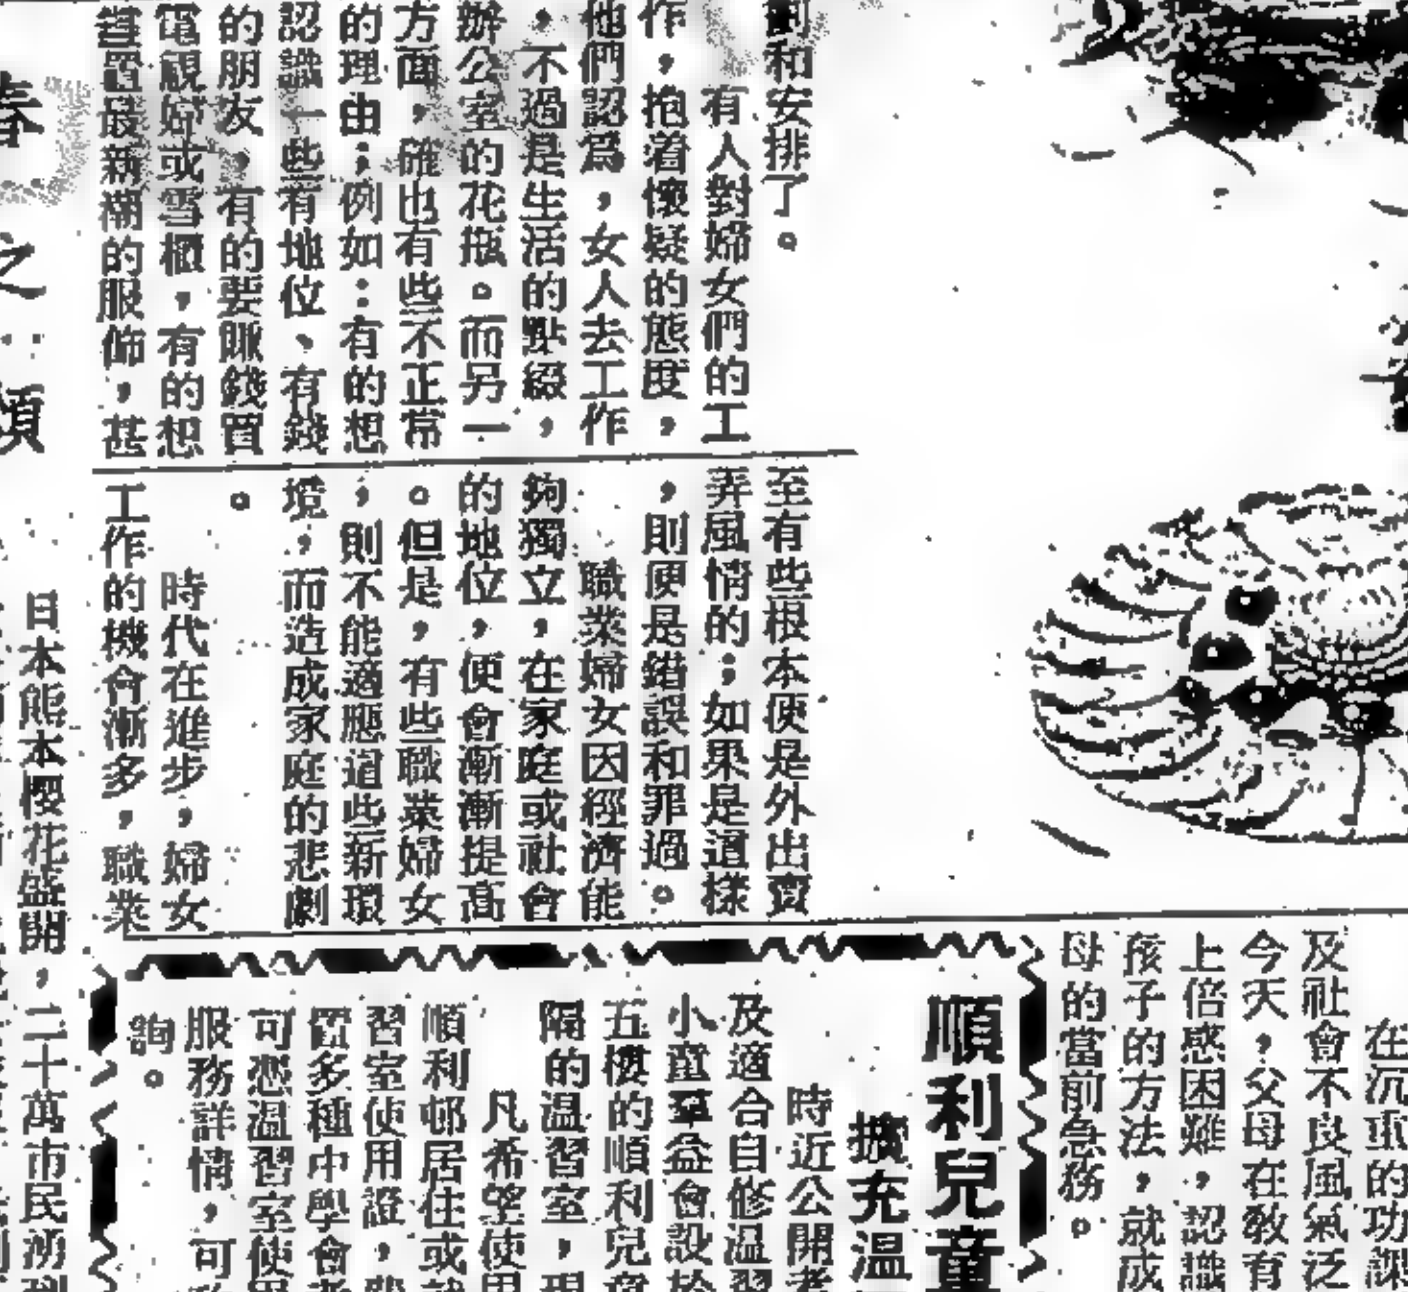 劃和安排了。
有人對婦女們的工
作，抱着懷疑的態度，
他們認爲，女人去工作
，不過是生活的點綴，
辦公室的花瓶。而另一
方面，確也有些不正常
的理由；例如：有的想
認識一些有地位、有錢
的朋友，有的要賺錢買
電視或雪櫃，有的想
置最新潮的服飾，甚
至有些根本便是外出賣
弄風情的；如果是這樣
，則便是錯誤和罪過。
職業婦女因經濟能
夠獨立，在家庭或社會
的地位，便會漸漸提高
。但是，有些職業婦女
，則不能適應這些新環
境，而造成家庭的悲劇
。
時代在進步，婦女
工作的機會漸多，職業
春之頌
日本熊本櫻花盛開，二十萬市民湧到
在沉重的功課
及社會不良風氣泛
今天，父母在敎有
上倍感困難，認識
孩子的方法，就成
母的當前急務。
順利兒童
擴充温
時近公開考
及適合自修温習
小童羣益會設於
五樓的順利兒童
隔的温習室，現
凡希望使用
順利邨居住或就
習室使用證，
置多種中學會考
可憑温習室使用
服務詳情，可
詢。